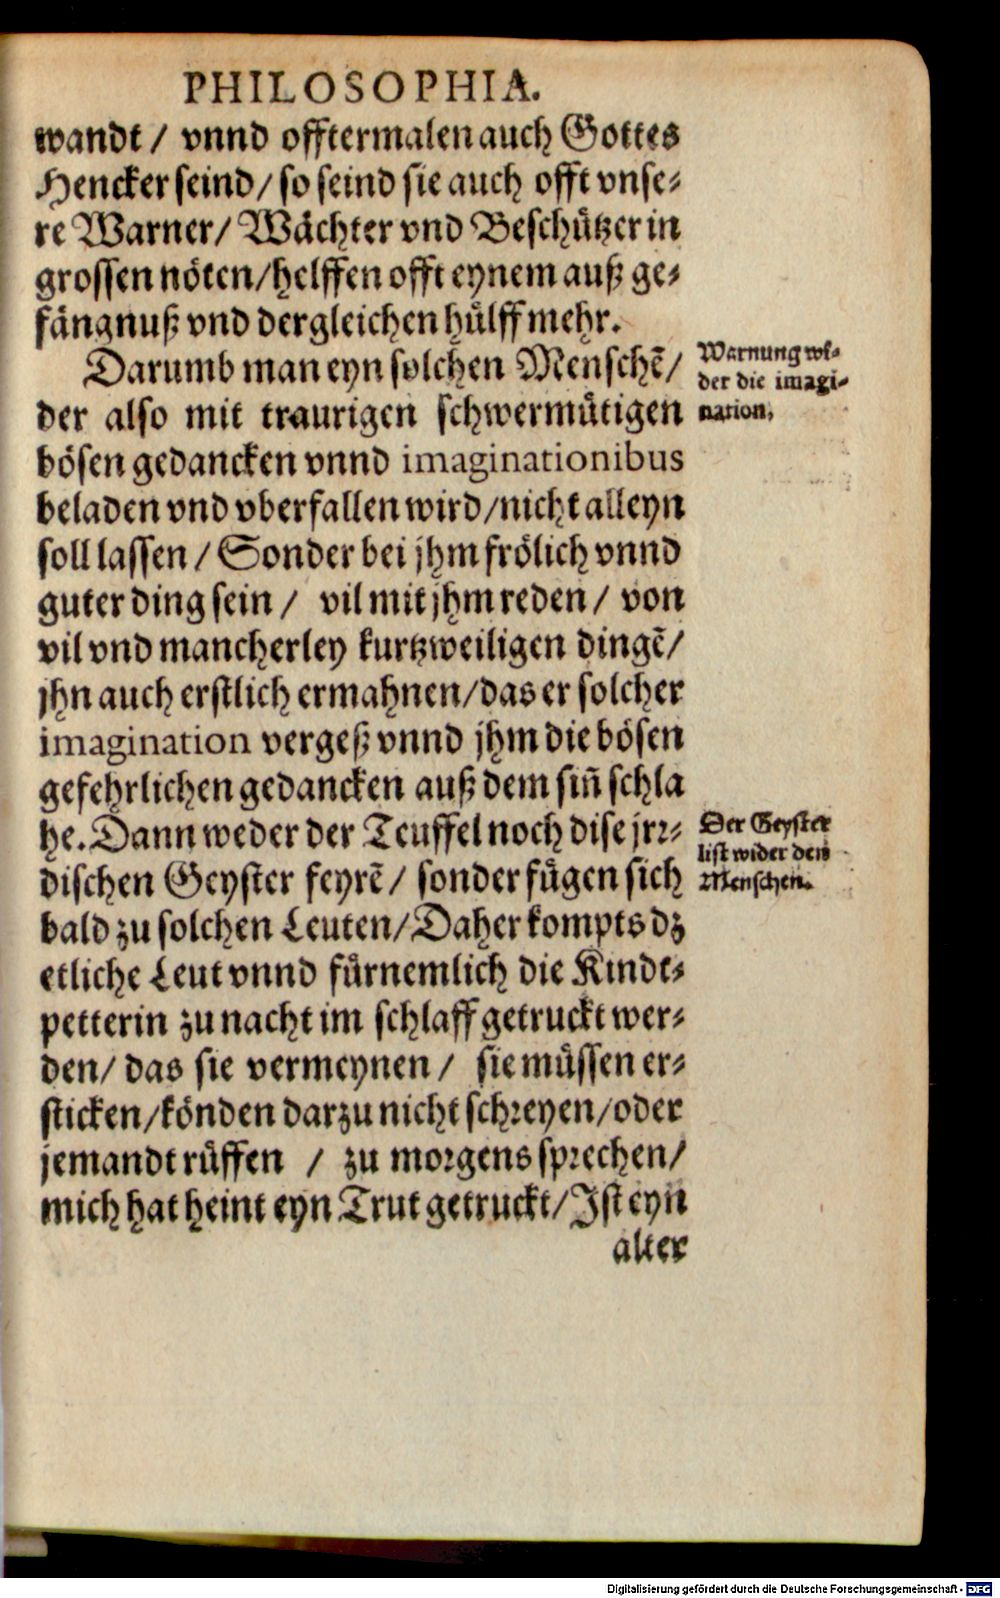 PHILOSOPHIA.
wandt / vnnd offtermalen auch Gottes
Hencker seind/ so seind sie auch offt vnse-
re Warner/ Wächter vnd Beschützer in
grossen nöten/helffen offt eynem auß ge-
fängnuß vnd dergleichen hülff mehr.
Darumb man eyn solchen Menschē/
der also mit traurigen schwermütigen
bösen gedancken vnnd imaginationibus
beladen vnd vberfallen wird/nicht alleyn
soll lassen / Sonder bei jhm frölich vnnd
guter ding sein / vil mit jhm reden / von
vil vnd mancherley kurtzweiligen dingē/
jhn auch erstlich ermahnen/das er solcher
imagination vergeß vnnd jhm die bösen
gefehrlichen gedancken auß dem siñ schla
he. Dann weder der Teuffel noch dise jrr-
dischen Geyster feyrē / sonder fügen sich
bald zu solchen Leuten/Daher kompts dz
etliche Leut vnnd fürnemlich die Kindt-
petterin zu nacht im schlaff getruckt wer-
den/ das sie vermeynen / sie müssen er-
sticken/könden darzu nicht schreyen/oder
jemandt rüffen / zu morgens sprechen/
mich hat heint eyn Trut getruckt/Jst eyn
alter
Warnung wi-
der die imagi-
nation.
Der Geyster
list wider den
Menschen.
Digitalisierung gefördert durch die Deutsche Forschungsgemeinschaft - DFG